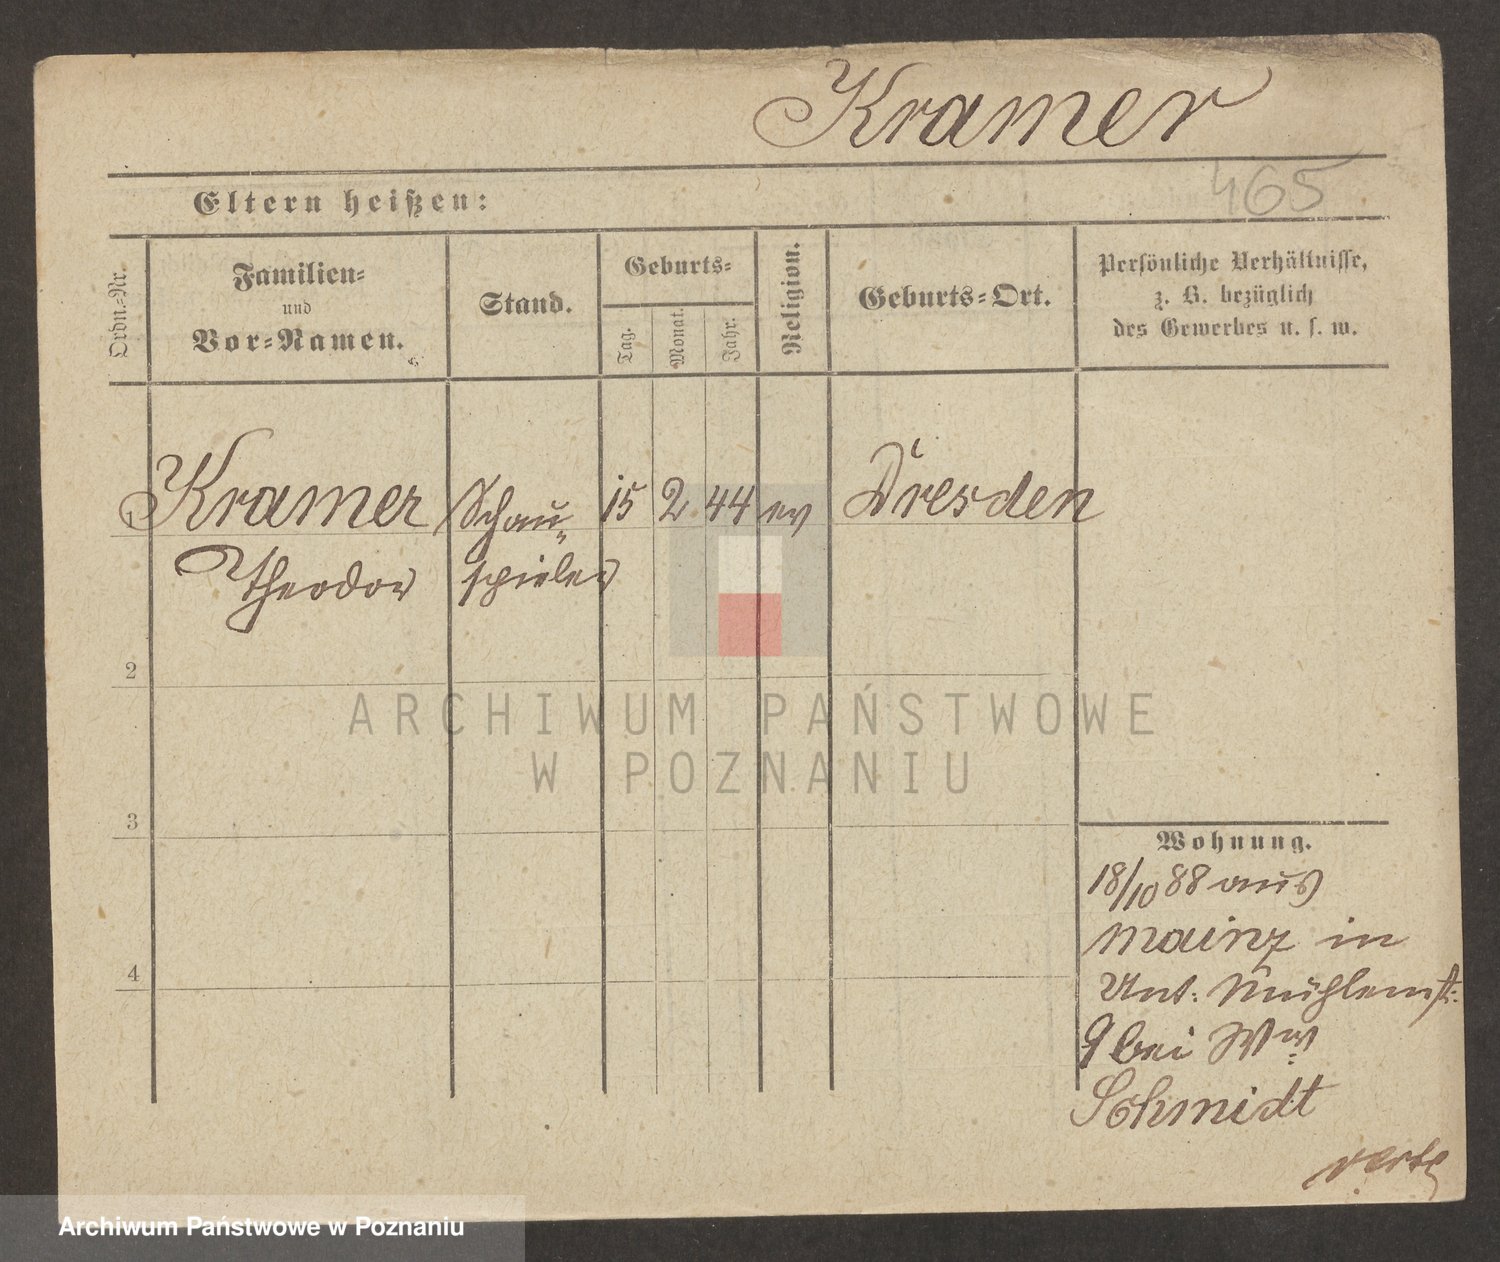 Kramer
465
Eltern heißen:
Ordn.-Nr.
Familien-
und
Vor-Namen.
Stand.
Geburts-
Tag.
Monat.
Jahr.
Religion.
Geburts-Ort.
Persönliche Verhältnisse,
z. B. bezüglich
des Gewerbes u. s. w.
1 Kramer Schau- 15 2 44 ev Dresden
Theodor spieler
2
3
4
Wohnung.
18/10 88 aus
Mainz in
Unt: Mühlenst:
9 bei Ww
Schmidt
verte
ARCHIWUM PAŃSTWOWE
W POZNANIU
Archiwum Państwowe w Poznaniu